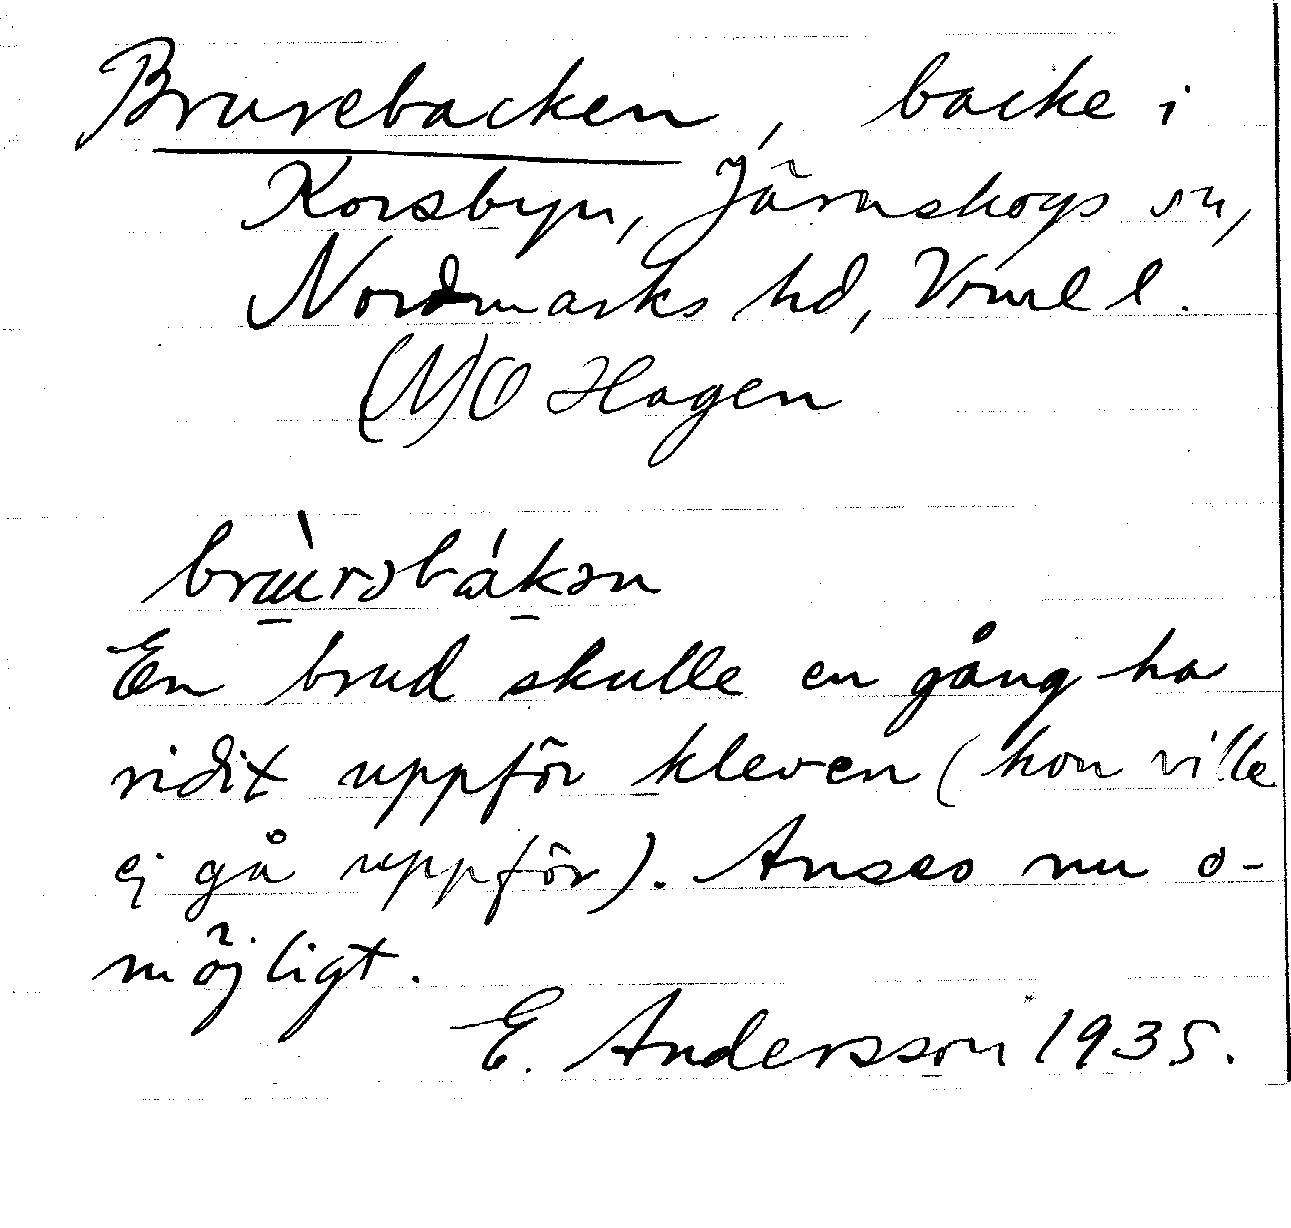 Brurebacken, backe i
Korsbyn, Järnskogs sn,
Nordmarks hd, Vrml l.
(N)O Hagen
En brud skulle en gång ha
ridit uppför kleven (hon ville
ej gå uppför). Anses nu o-
möjligt.
E. Andersson 1935.